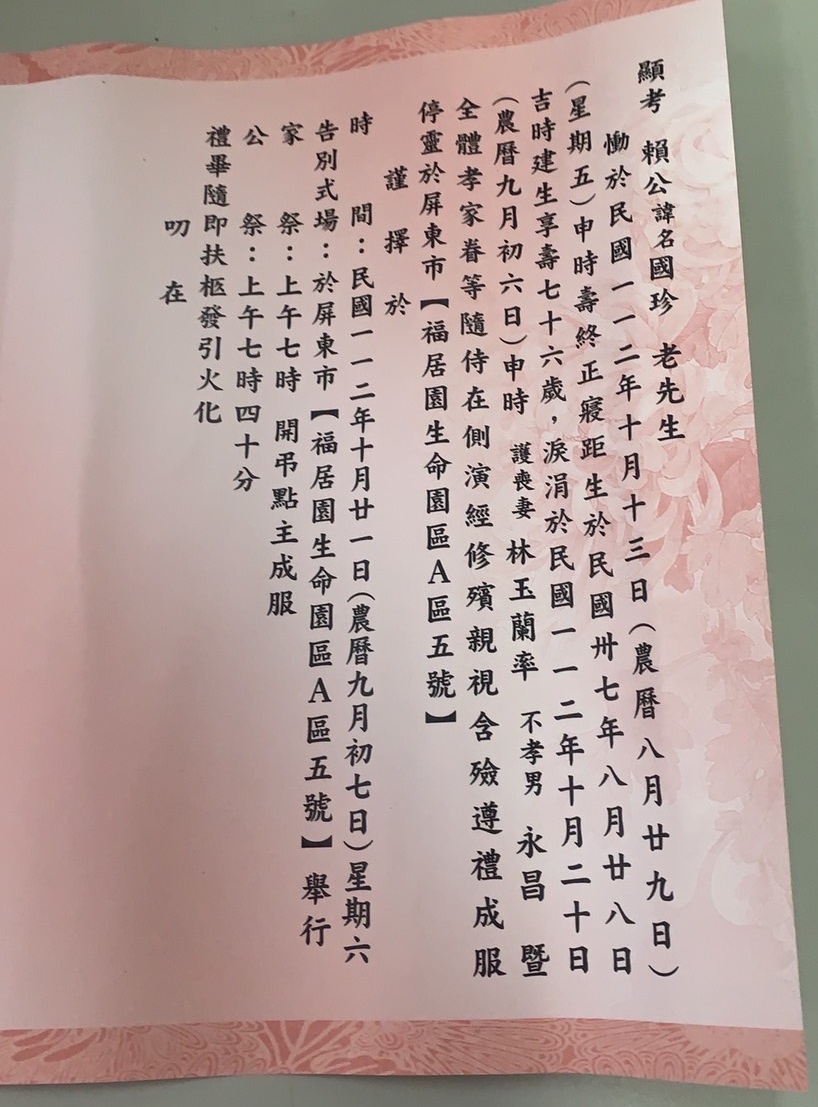 顯考 賴公諱名國珍 老先生
慟於民國一一二年十月十三日(農曆八月廿九日)
(星期五)申時壽終正寢距生於民國卅七年八月廿八日
吉時建生享壽七十六歲，淚涓於民國一一二年十月二十日
(農曆九月初六日)申時 護喪妻 林玉蘭率 不孝男 永昌 暨
全體孝家眷等隨侍在側演經修殯親視含殮遵禮成服
停靈於屏東市【福居園生命園區A區五號】
謹擇於
時間：民國一一二年十月廿一日(農曆九月初七日)星期六
告別式場：於屏東市【福居園生命園區A區五號】舉行
家祭：上午七時 開弔點主成服
公祭：上午七時四十分
禮畢隨即扶柩發引火化
叨在